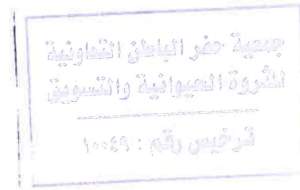 جمعية حفر الباطن التعاونية
للثروة الحيوانية والتسويق
ترخيص رقم : ١٠٠٤٩